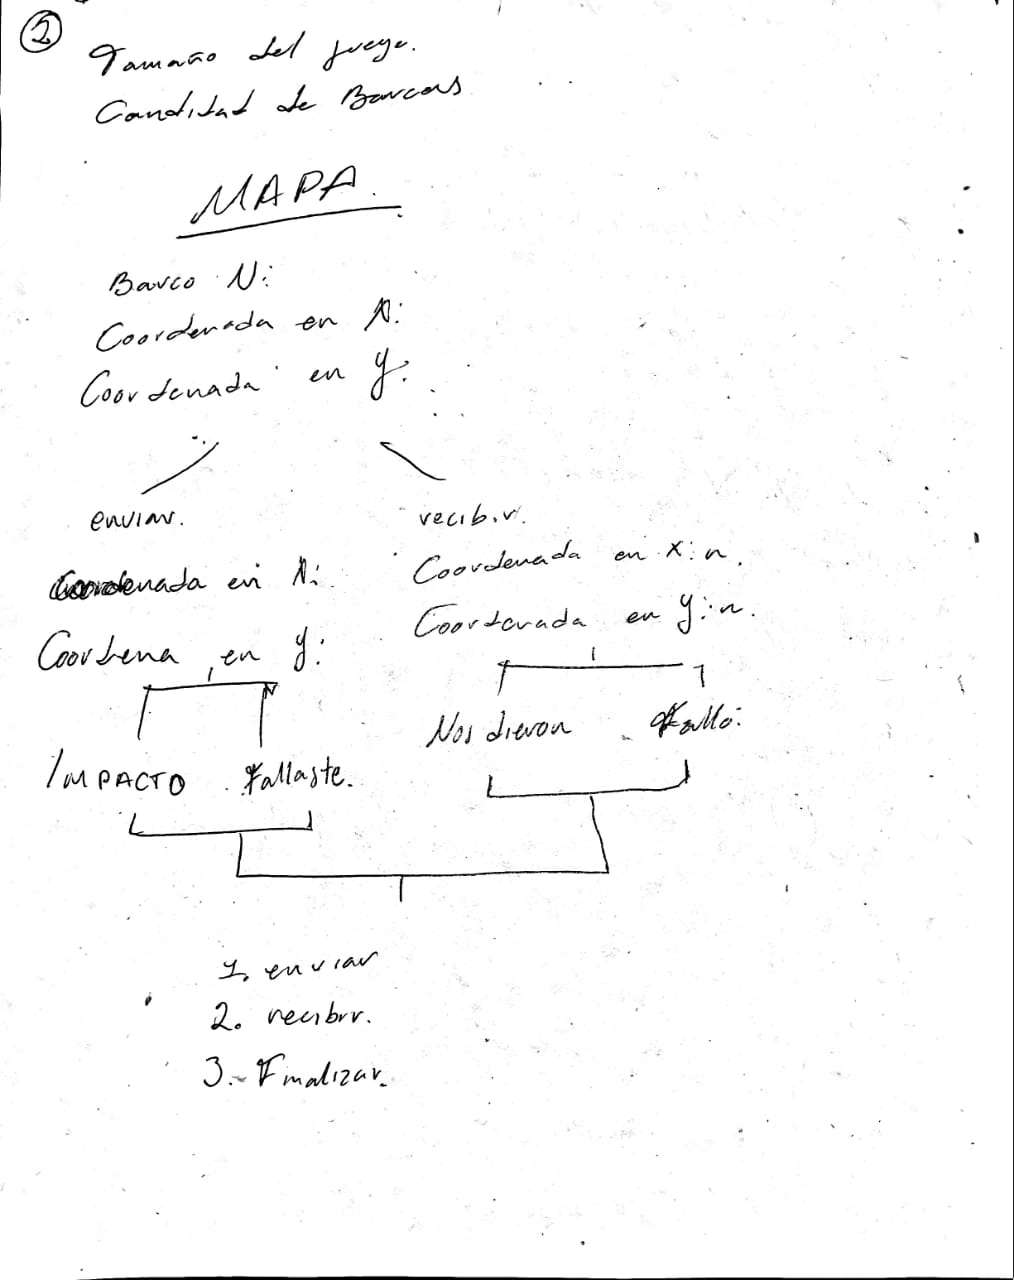 2
Tamaño del juego.
Candidad de Barcos
MAPA.
Barco N:
Coordenada en X:
Coordenada en y:
enviar.
Coordenada en X:
Coordena en y:
IMPACTO Fallaste.
recibir.
Coordenada en x: n.
Coordenada en y: n.
Nos dieron Falló.
1. enviar
2. recibir.
3.- Finalizar.